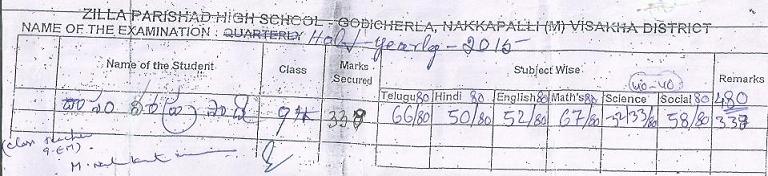 ZILLA PARISHAD HIGH SCHOOL - GODICHERLA, NAKKAPALLI (M) VISAKHA DISTRICT
NAME OF THE EXAMINATION : QUARTERLY Half-yearly-2015
Name of the Student Class Marks Secured Subject Wise 40-40 Remarks
Telugu 80 Hindi 80 English 80 Math's 80 Science Social 80 480
9th 338 66/80 50/80 52/80 67/80 33/80 58/80 338
(class teacher